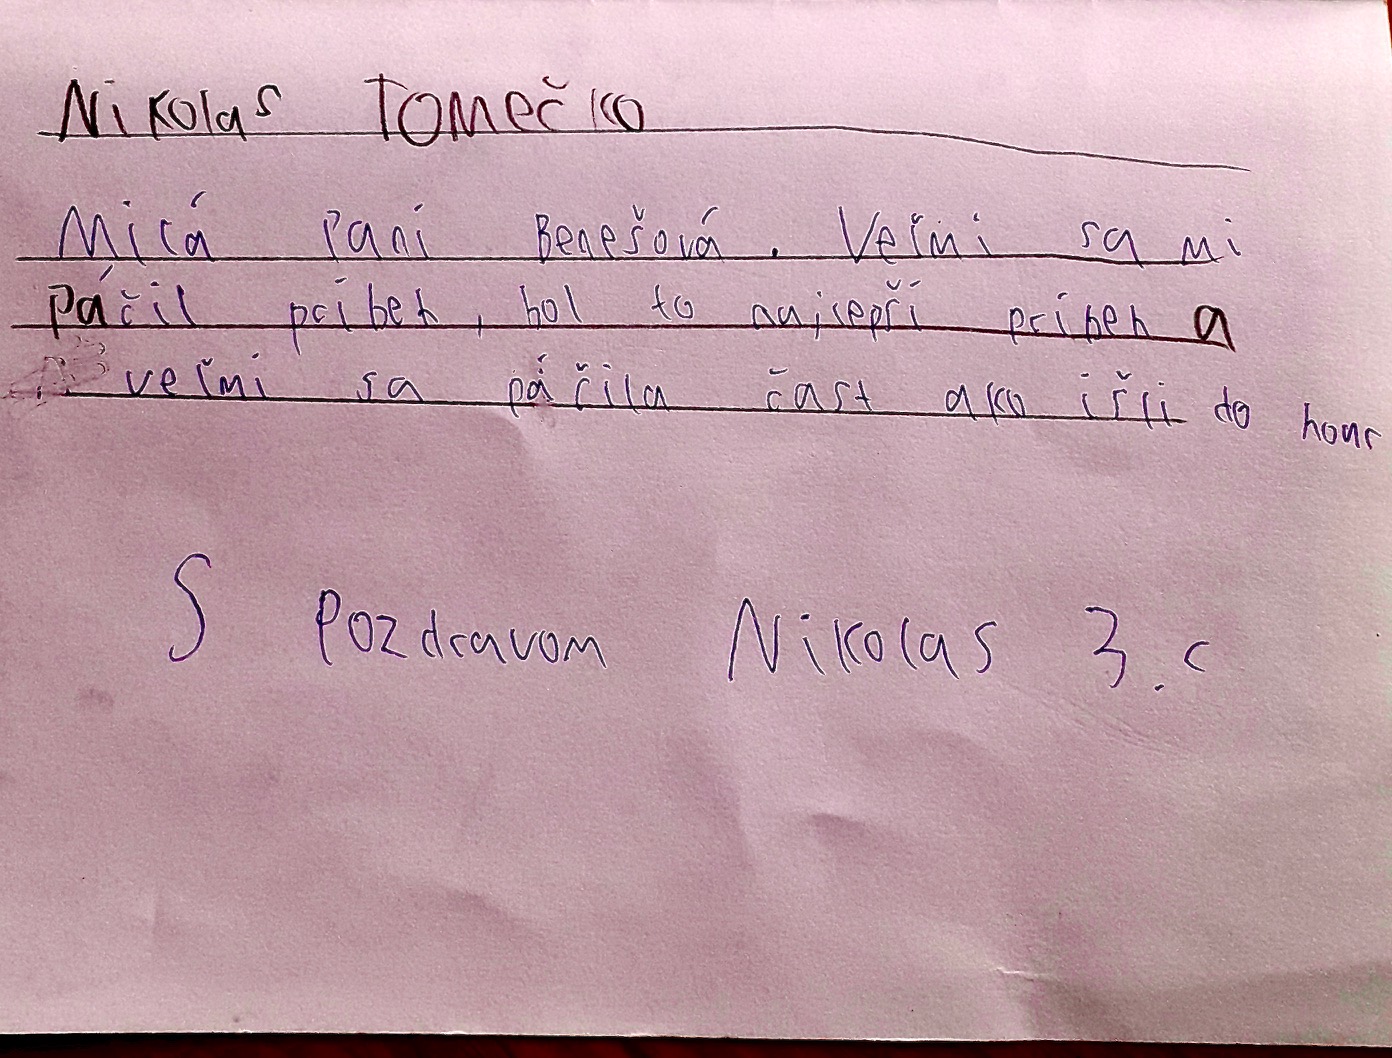 Nikolas Tomečko
Milá Paní Benešová. Veľmi sa mi
páčil príbeh, bol to najlepší príbeh a
veľmi sa páčila časť ako išli do
S Pozdravom Nikolas 3.c